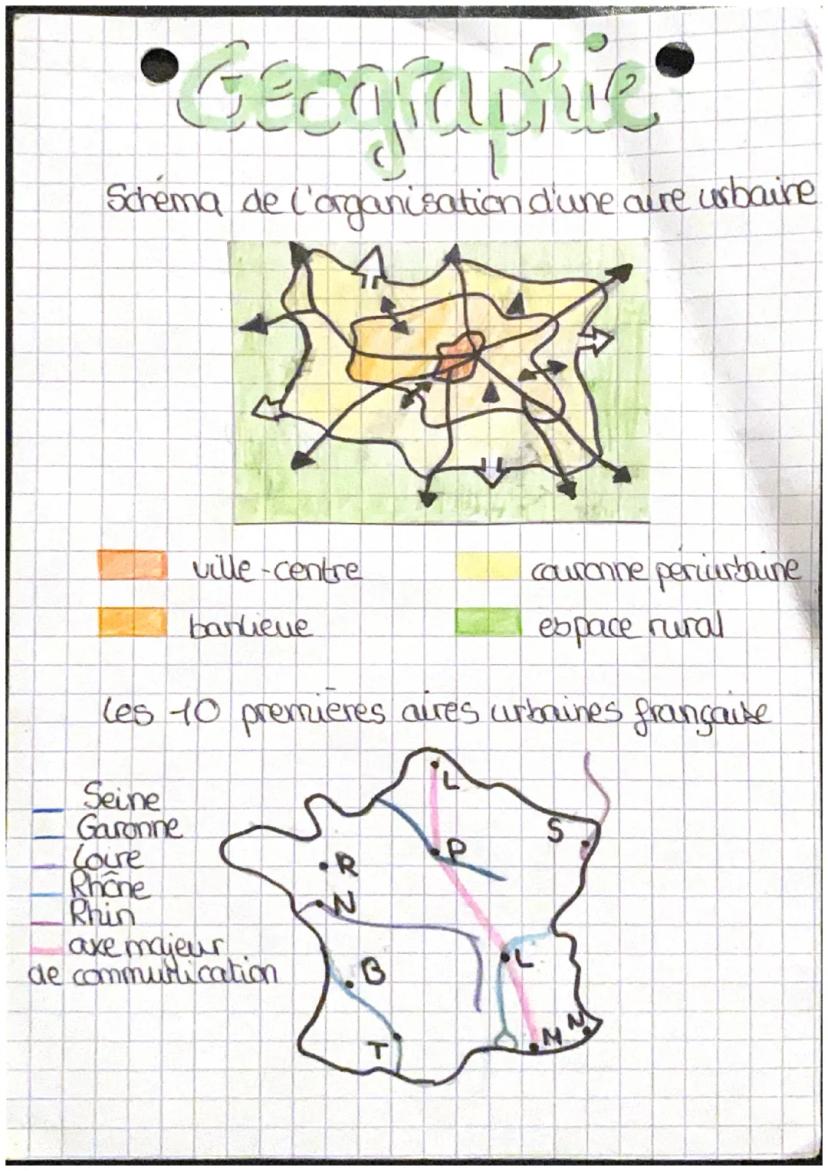 Geographie
Schéma de l'organisation d'une aire urbaine
ville-centre
couronne périurbaine
banlieue
espace rural
Les 10 premières aires urbaines française
Seine
Garonne
Loire
Rhône
Rhin
axe majeur
de communication
L
S
P
R
N
L
B
T
M
N